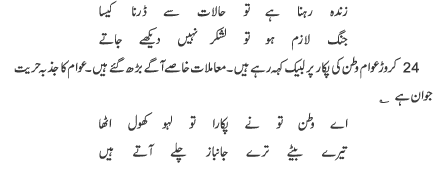 زندہ رہنا ہے تو حالات سے ڈرنا کیسا
جنگ لازم ہو تو لشکر نہیں دیکھے جاتے
24 کروڑ عوام وطن کی پکار پر لبیک کہہ رہے ہیں۔ معاملات خاصے آگے بڑھ گئے ہیں۔ عوام کا جذبہ حریت
جوان ہے ؎
اے وطن تو نے پکارا تو لہو کھول اٹھا
تیرے بیٹے ترے جانباز چلے آتے ہیں